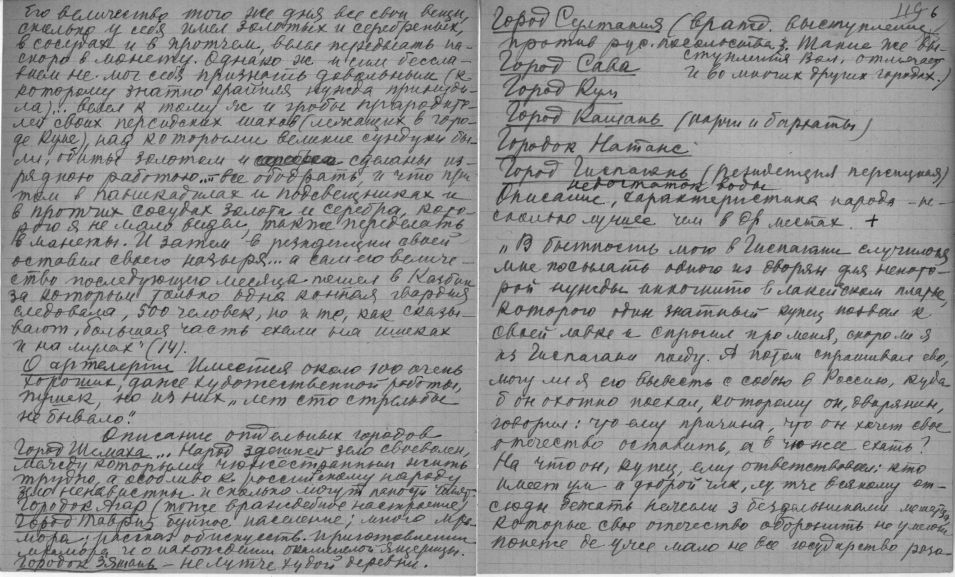 Его величество того же дня все свои вещи,
сколько у себя имел золотых и серебреных,
в сосудах и в протчем, велел передѣлать на-
скоро в монету. Однако ж и сим бессла-
вием не мог себя признать довольным (к
которому знатно крайняя нужда принуди-
ла)... велел к тому яс и гробы прародите-
лей своих персидских шахов (лежащих в горо-
де Куме), над которыми великие сундуки бы-
ли, обиты золотом и сделаны из-
рядною работою... все ободрать и что при
том в паникадилах и подсвещниках и
в протчих сосудах золота и серебра, кото-
рого я не мало видел, также переделать
в монеты. И затем в резиденции своей
оставил своего назыря... а сам его величе-
ство последующего месяца пошел в Казбин
за которым только одна конная гвардия
следовала, 500 человек, но и то, как сказы-
вают, большая часть ехали на ишаках
и на мулах" (14).
О артелерии Имеется около 100 очень
хороших, даже художественной работы,
пушек, но из них „лет сто стрельбы
не бывало".
Описание отдельных городов
Город Шемаха... Народ здешней зело своеволен,
между которыми чужестранным жить
трудно, а особливо к российскому народу
зело ненавистны и сколько могут
Городок Агар (тоже враждебное настроение)
Город Тавриз буйное население; много мра-
мора; рассказ об искусств. приготовлении
мрамора и о нахождении окаменелой ящерицы.
Городок Зянань – не лутче худой деревни.
119-6
Город Султания (вратд. выступление
против рус. посольства. Такие же вы-
ступления Вол. отмечает
и во многих других городах.)
Город Сава
Город Кум
Город Кашань (парчи и бархаты)
Городок Натанс
Город Гиспагань (резиденция персицкая)
недостаток воды
Описание, характеристика народа – не-
сколько лучшее чем в др местах. +
„В бытность мою в Гиспагани случилося
мне посылать одного из дворян для некото-
рой нужды инкогнито в лакейском платье,
которого один знатный купец позвал к
своей лавке и спросил про меня, скоро ли я
из Гиспагани поеду. А потом спрашивал ево,
могу ли я его вывесть с собою в Россию, куда
б он охотно поехал, которому он, дворянин,
говорил: что ему причина, что он хочет свое
отечество оставить, а в чюжее ехать?
На что он, купец, ему ответствовал: кто
имеет ум и доброй чловек, лутче всякому от-
сюды бежать нежели з бездельниками
которые свое отечество оборонить не умеют
понеже де уже мало не все государство разо-